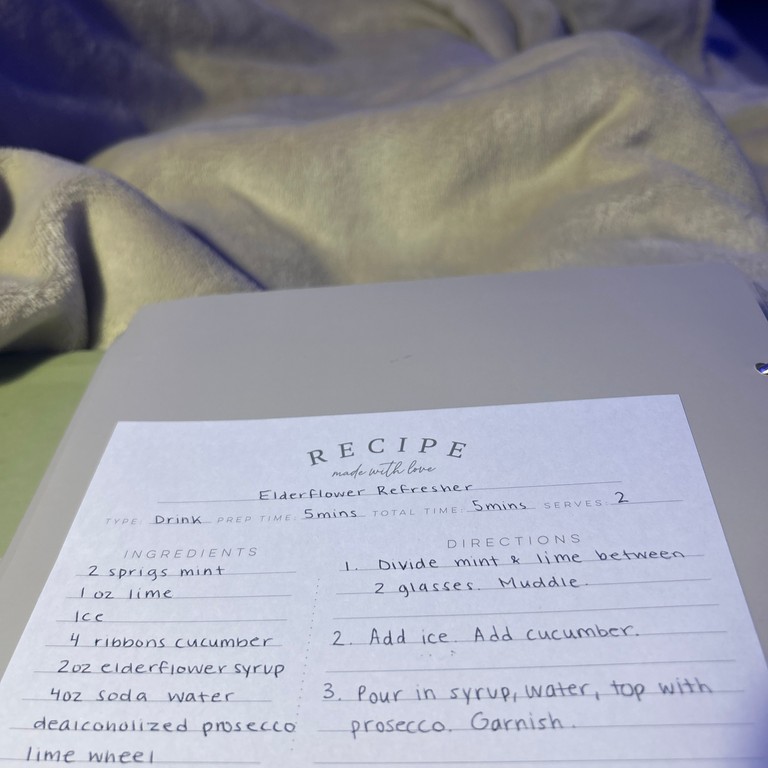 RECIPE
made with love
Elderflower Refresher
TYPE: Drink PREP TIME: 5mins TOTAL TIME: 5mins SERVES: 2
INGREDIENTS
2 sprigs mint
1 oz lime
Ice
4 ribbons cucumber
2oz elderflower syrup
4oz soda water
dealcoholized prosecco
lime wheel
DIRECTIONS
1. Divide mint & lime between
2 glasses. Muddle.
2. Add ice. Add cucumber.
3. Pour in syrup, water, top with
prosecco. Garnish.